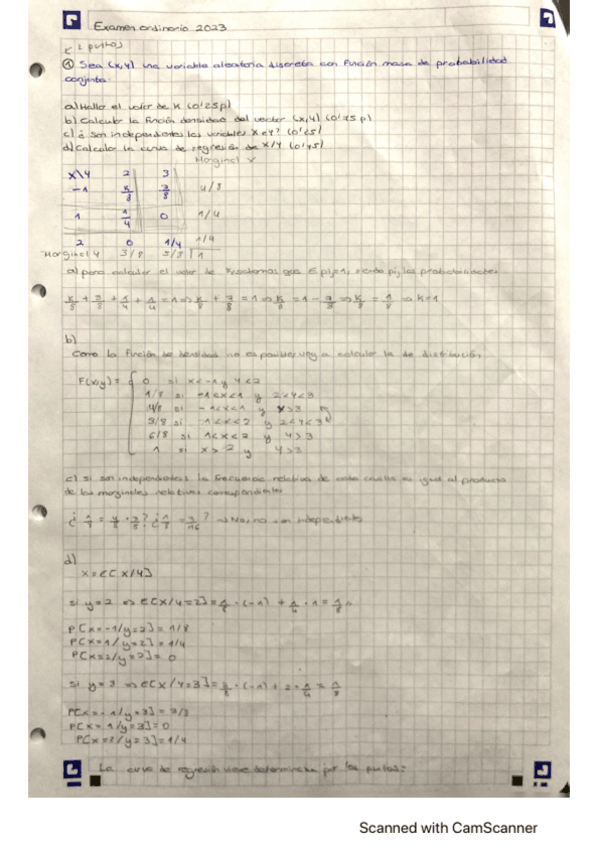 Examen ordinario 2023
① Sea (X,Y) una variable aleatoria discreta con función masa de probabilidad
conjunta
a) Halla el valor de K (0'25p)
b) Calcular la función densidad del vector (X,Y) (0'75p)
c) ¿Son independientes las variables X e Y? (0'25)
d) Calcular la curva de regresión de X/Y (0'75)
Marginal X
X\Y 2 3
-1 K/8 3/8 4/8
1 1/4 0 1/4
2 0 1/4 1/4
Marginal Y 3/8 5/8 1
a) para calcular el valor de K sabemos que Σpij=1, siendo pij las probabilidades
K/8 + 3/8 + 1/4 + 1/4 = 1 ⇒ K/8 + 7/8 = 1 ⇒ K/8 = 1 - 7/8 ⇒ K/8 = 1/8 ⇒ K=1
b)
Como la función de densidad no es posible, voy a calcular la de distribución
F(x,y) = { 0 si x<-1 y Y<2
1/8 si -1<x<1 y 2<Y<3
4/8 si -1<x<1 y Y>3
3/8 si 1<x<2 y 2<Y<3
6/8 si 1<x<2 y Y>3
1 si x>2 y Y>3
c) si son independientes la frecuencia relativa de cada casilla es igual al producto
de las marginales relativas correspondientes
¿1/8 = 4/8 · 3/8? ¿1/8 = 3/16? ⇒ No, no son independientes
d)
X = E[X/Y]
si y=2 ⇒ E[X/Y=2] = 1/8 · (-1) + 1/4 · 1 = 1/8
P[X=-1/y=2] = 1/8
P[X=1/y=2] = 1/4
P[X=2/y=2] = 0
si y=3 ⇒ E[X/Y=3] = 3/8 · (-1) + 2 · 1/4 = 1/8
P[X=-1/y=3] = 3/8
P[X=1/y=3] = 0
P[X=2/y=3] = 1/4
La curva de regresión viene determinada por los puntos:
Scanned with CamScanner